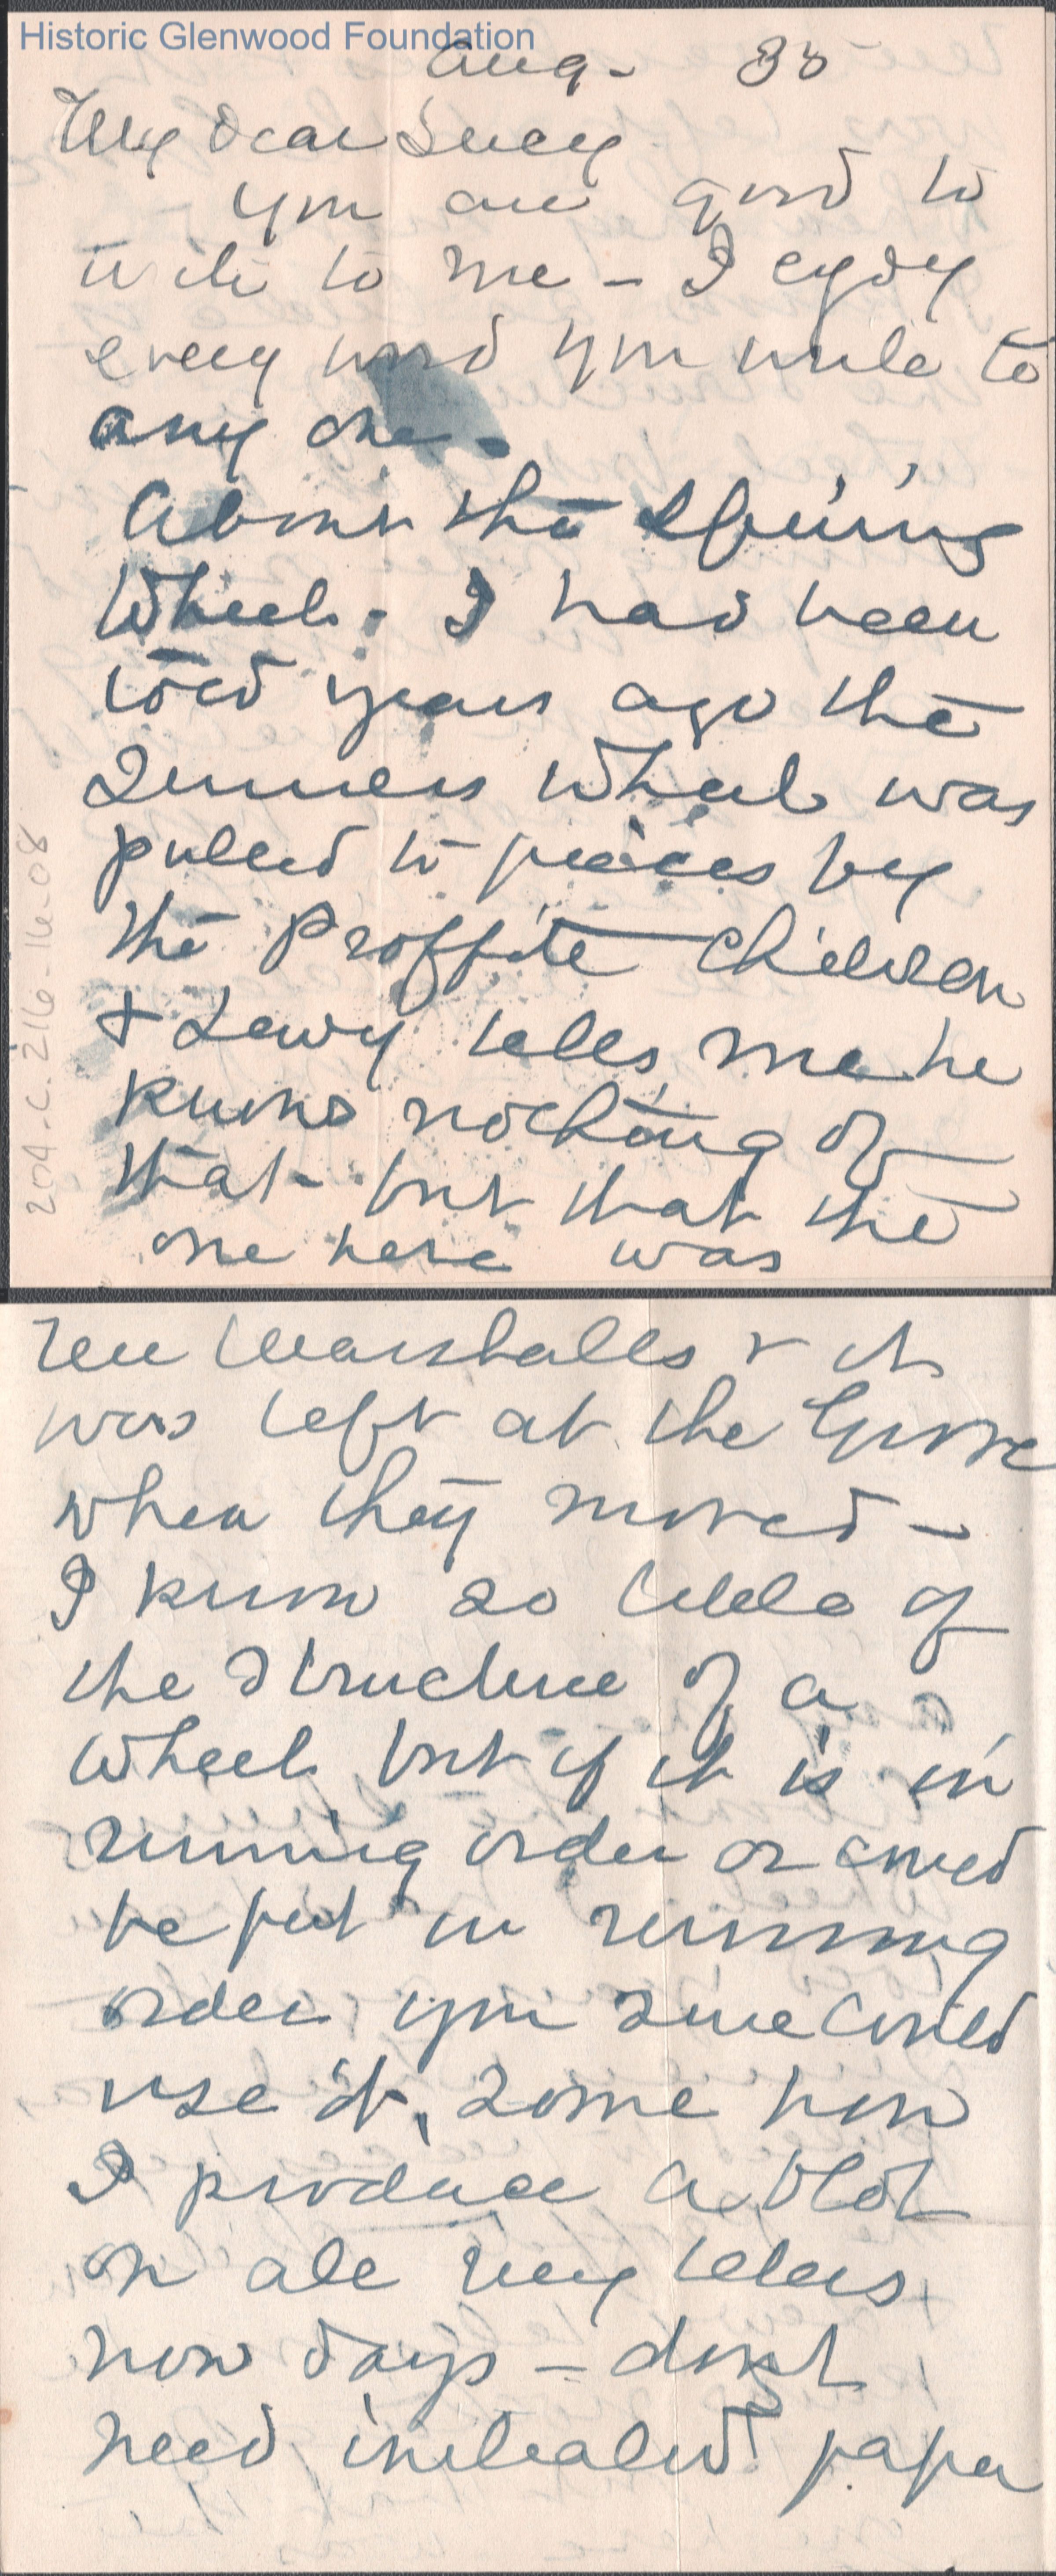 Historic Glenwood Foundation
Aug -
My Dear Lucy
you are good to
write to me - I enjoy
every word you write to
any one -
About the spining
Wheel. I had been
told years ago the
Wheel was
pulled to pieces by
the Proffite Children
+ Lewy tells me he
knows nothing of
that - but that the
one here was
Marshalls & it
was left at the Grove
when they moved -
I know so little of
the structure of a
Wheel but if it is in
running order or could
be put in running
order you sure could
use it, some how
I produce a blot
on all my letters
now days - dont
need initialed paper
204.C.216-16-08